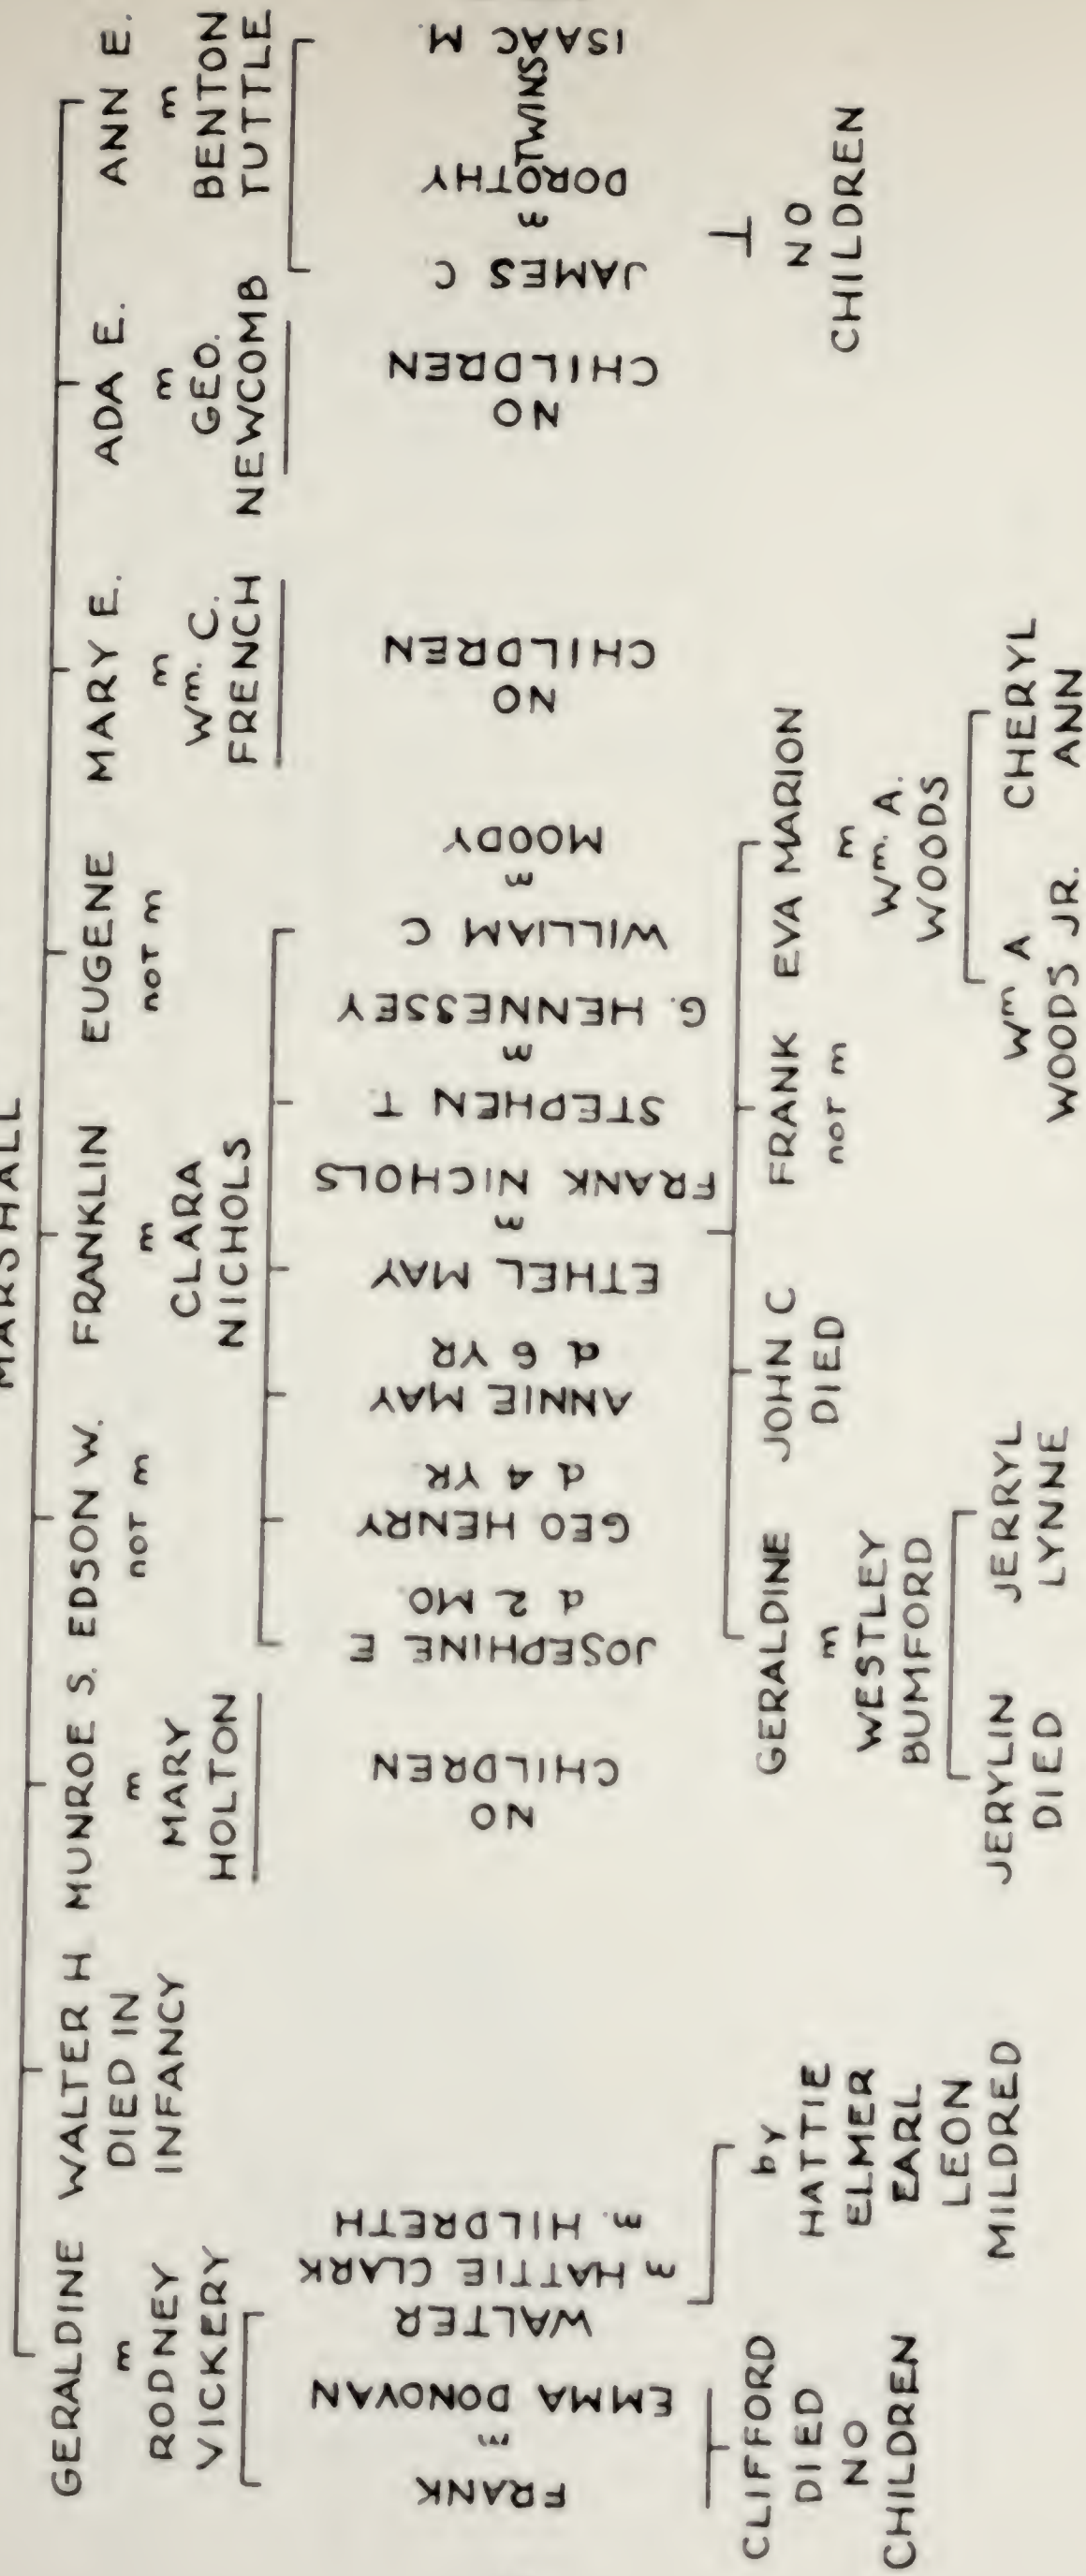 MARSHALL
GERALDINE
m
RODNEY
VICKERY
WALTER H
DIED IN
INFANCY
MUNROE S.
m
MARY
HOLTON
EDSON W.
not m
FRANKLIN
m
CLARA
NICHOLS
EUGENE
not m
MARY E.
m
Wm. C.
FRENCH
ADA E.
m
GEO.
NEWCOMB
ANN E.
m
BENTON
TUTTLE
FRANK
m
EMMA DONOVAN
WALTER
m HATTIE CLARK
m. HILDRETH
NO
CHILDREN
JOSEPHINE E
d 2 MO
GEO HENRY
d 4 YR
ANNIE MAY
d 6 YR
ETHEL MAY
m
FRANK NICHOLS
STEPHEN T
m
G. HENNESSEY
WILLIAM C
m
MOODY
NO
CHILDREN
NO
CHILDREN
JAMES C
m
DOROTHY
TWINS
ISAAC M.
CLIFFORD
DIED
NO
CHILDREN
by
HATTIE
ELMER
EARL
LEON
MILDRED
GERALDINE
m
WESTLEY
BUMFORD
JOHN C
DIED
FRANK
not m
EVA MARION
m
Wm. A.
WOODS
NO
CHILDREN
JERYLIN
DIED
JERRYL
LYNNE
Wm A
WOODS JR.
CHERYL
ANN